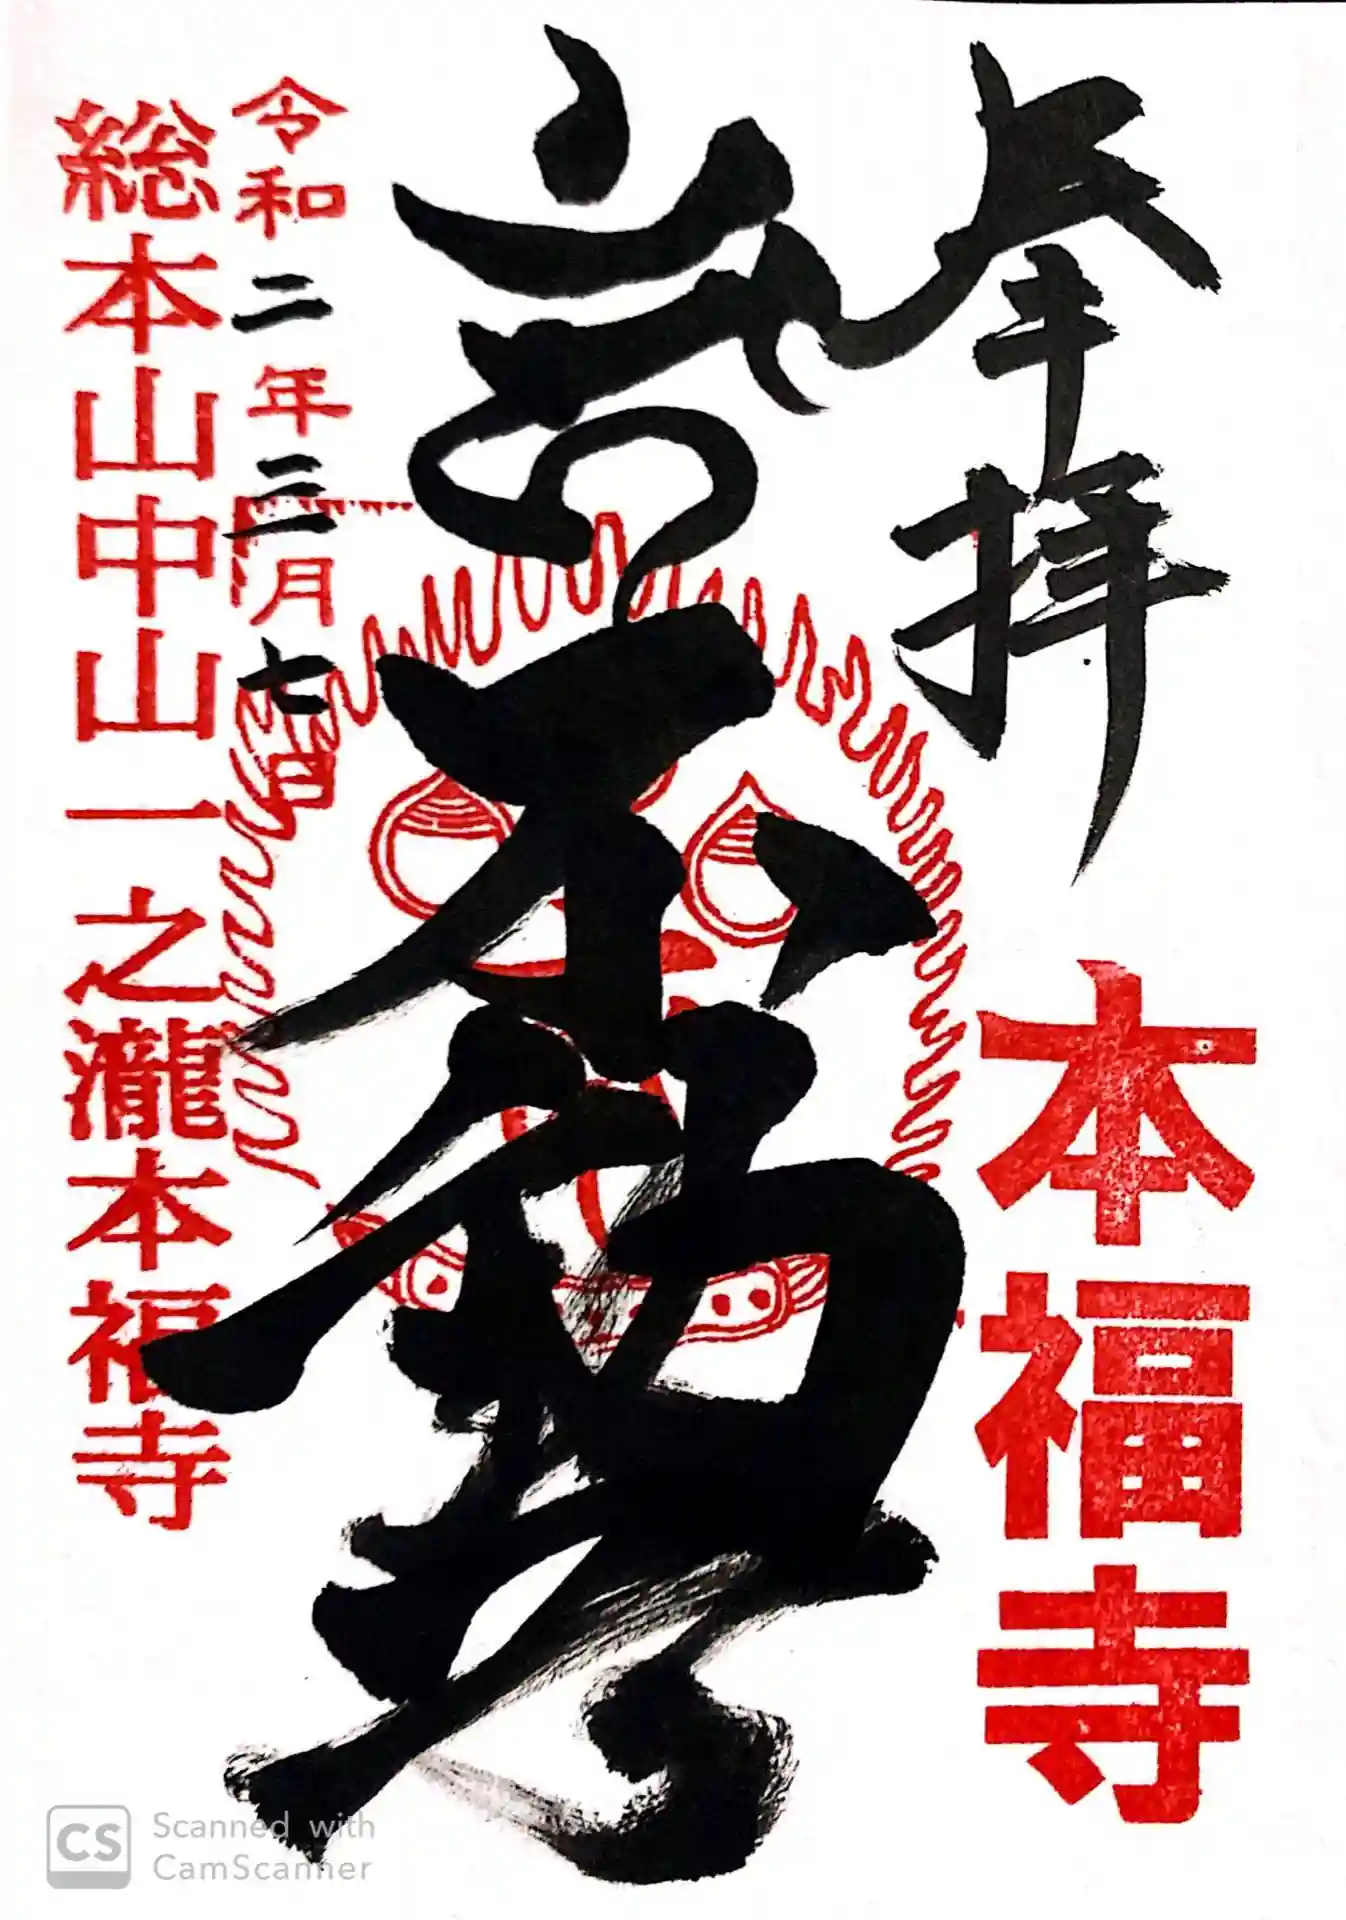 奉拝
本福寺
不動尊
令和二年三月七日
総本山中山一之瀧本福寺
CS Scanned with
CamScanner